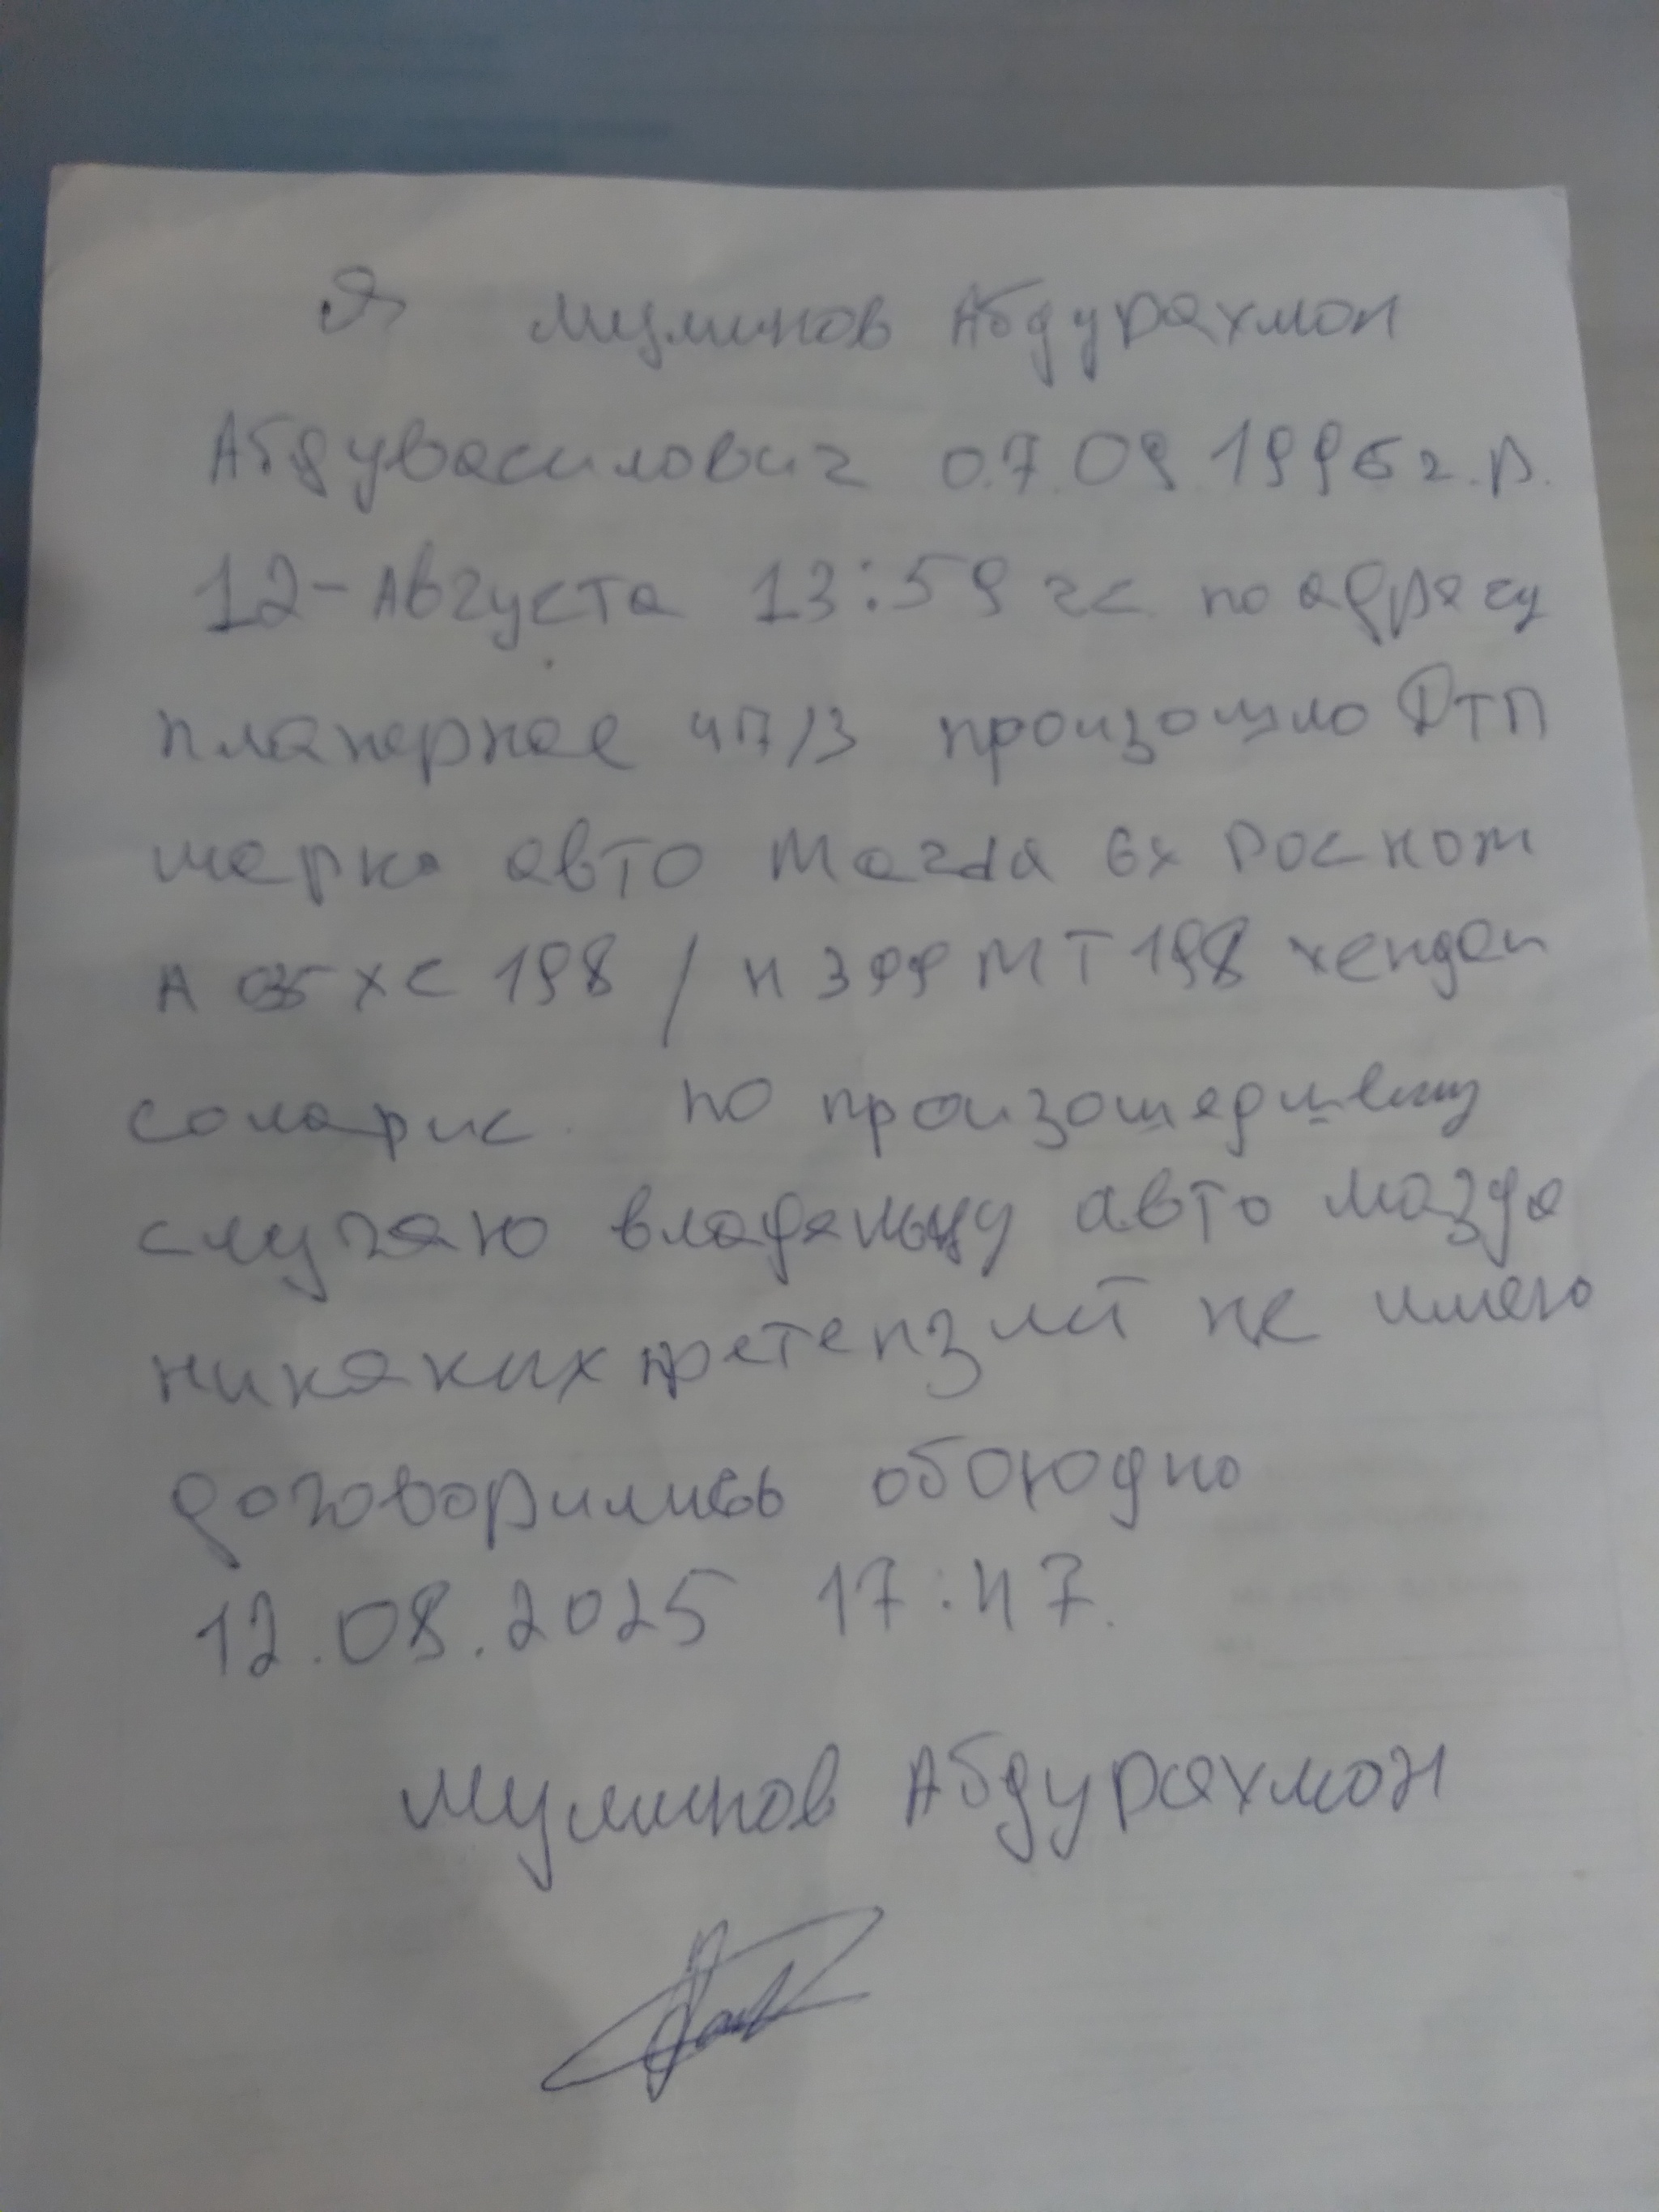 Я Муминов Абдурахмон
Абдувасилович 07.09.1996 г.р.
12-Августа 13:59 чс по адресу
планерная 47/3 произошло ДТП
марка авто Mazda 6х Росном
А ХС 198 / Н 399 МТ 198 хендай
соларис. по произошедшему
случаю владельцу авто мазда
никаких претензий не имею
договорились обоюдно
12.08.2025 17:47.
Муминов Абдурахмон